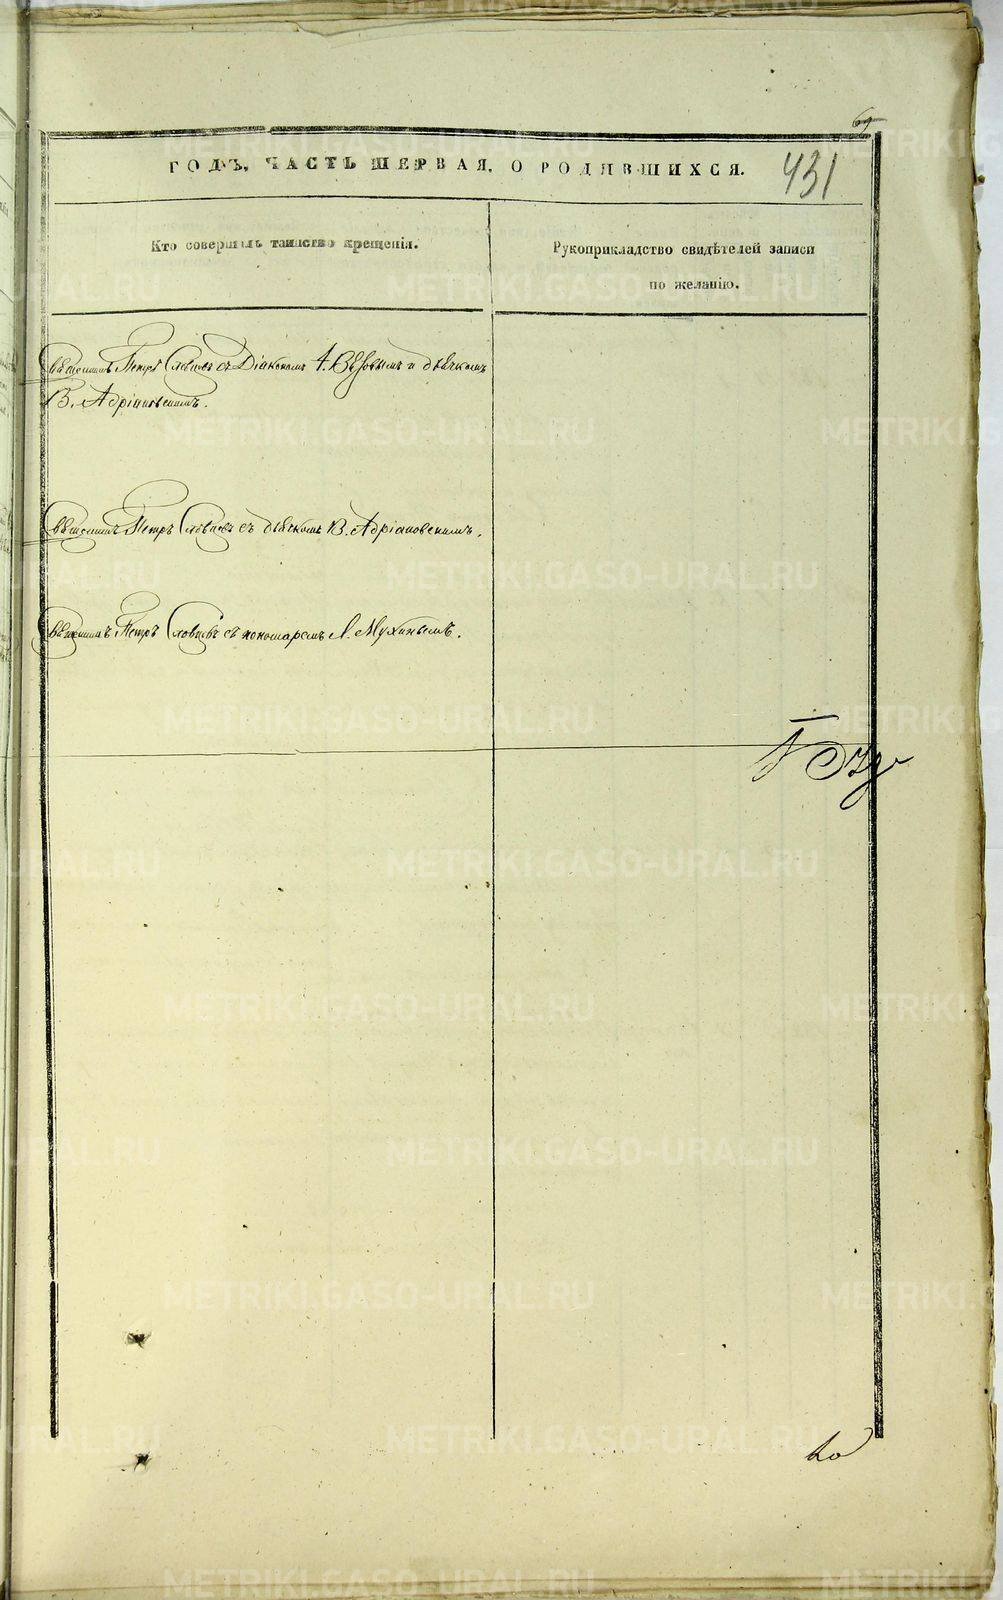 69
ГОДЪ, ЧАСТЬ ПЕРВАЯ, О РОДИВШИХСЯ.
431
Кто совершилъ таинство крещенія.
Рукоприкладство свидѣтелей записи
по желанію.
Священникъ Петръ Словцовъ съ Діакономъ А. Вѣковымъ и дьячкомъ
В. Адріановскимъ.
Священникъ Петръ Словцовъ съ дьячкомъ В. Адріановскимъ.
Священникъ Петръ Словцовъ съ пономаремъ Л. Мухинымъ.
METRIKI.GASO-URAL.RU